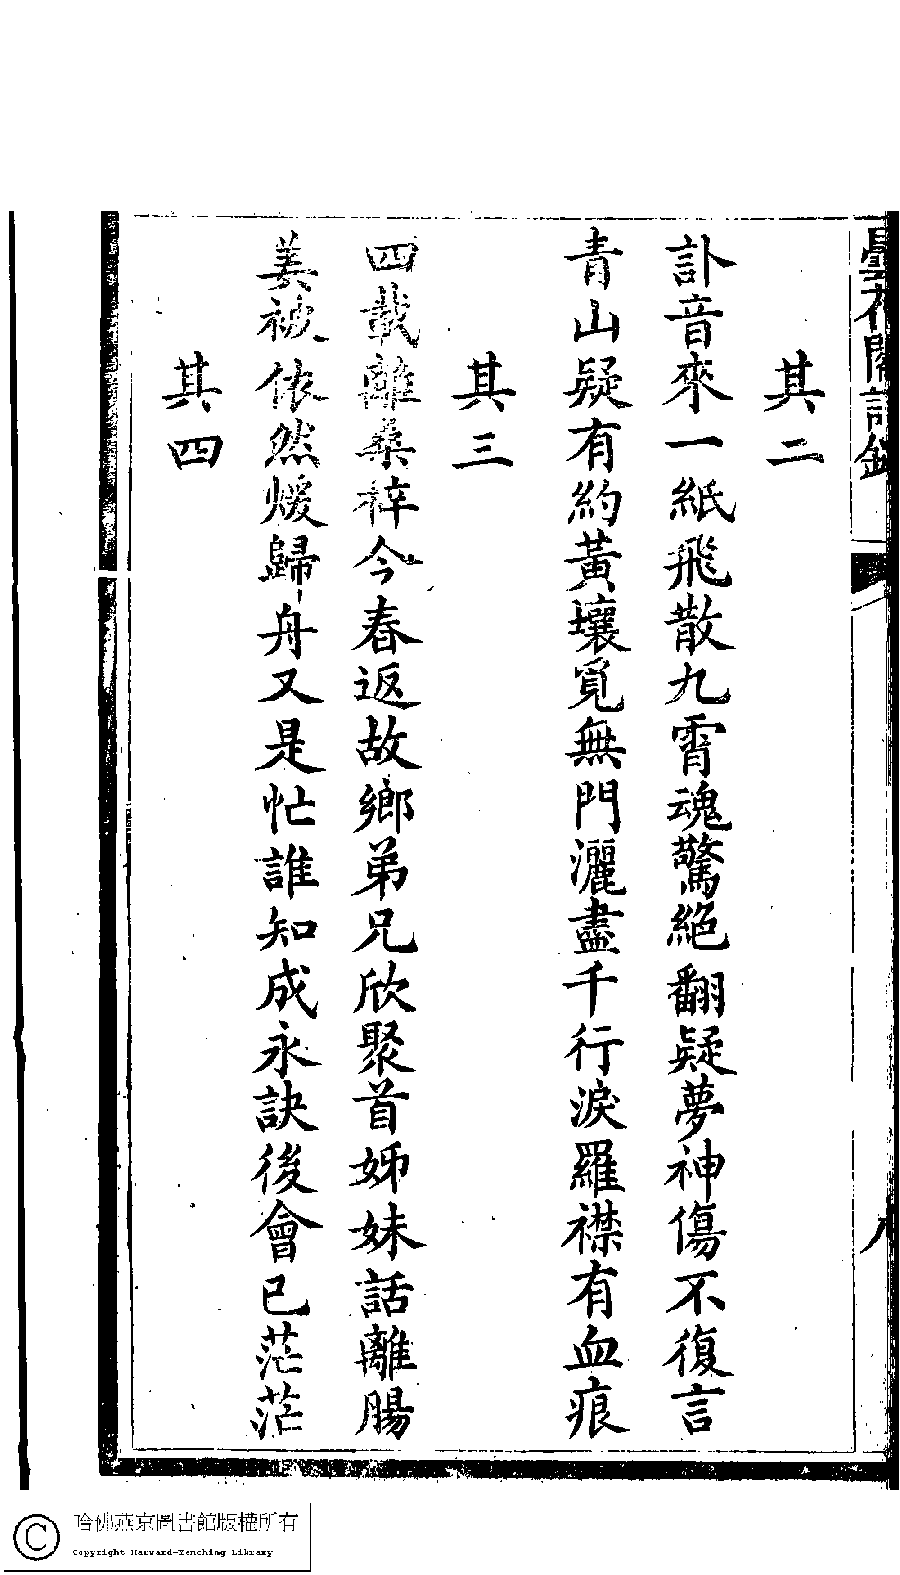 曇花閣詩鈔
其二
訃音來一紙飛散九霄魂驚絕翻疑夢神傷不復言
青山疑有約黃壤覓無門灑盡千行淚羅襟有血痕
其三
四載離桑梓今春返故鄉弟兄欣聚首姊妹話離腸
姜被依然煖歸舟又是忙誰知成永訣後會已茫茫
其四
八
哈佛燕京圖書館版權所有
Copyright Harvard-Yenching Library